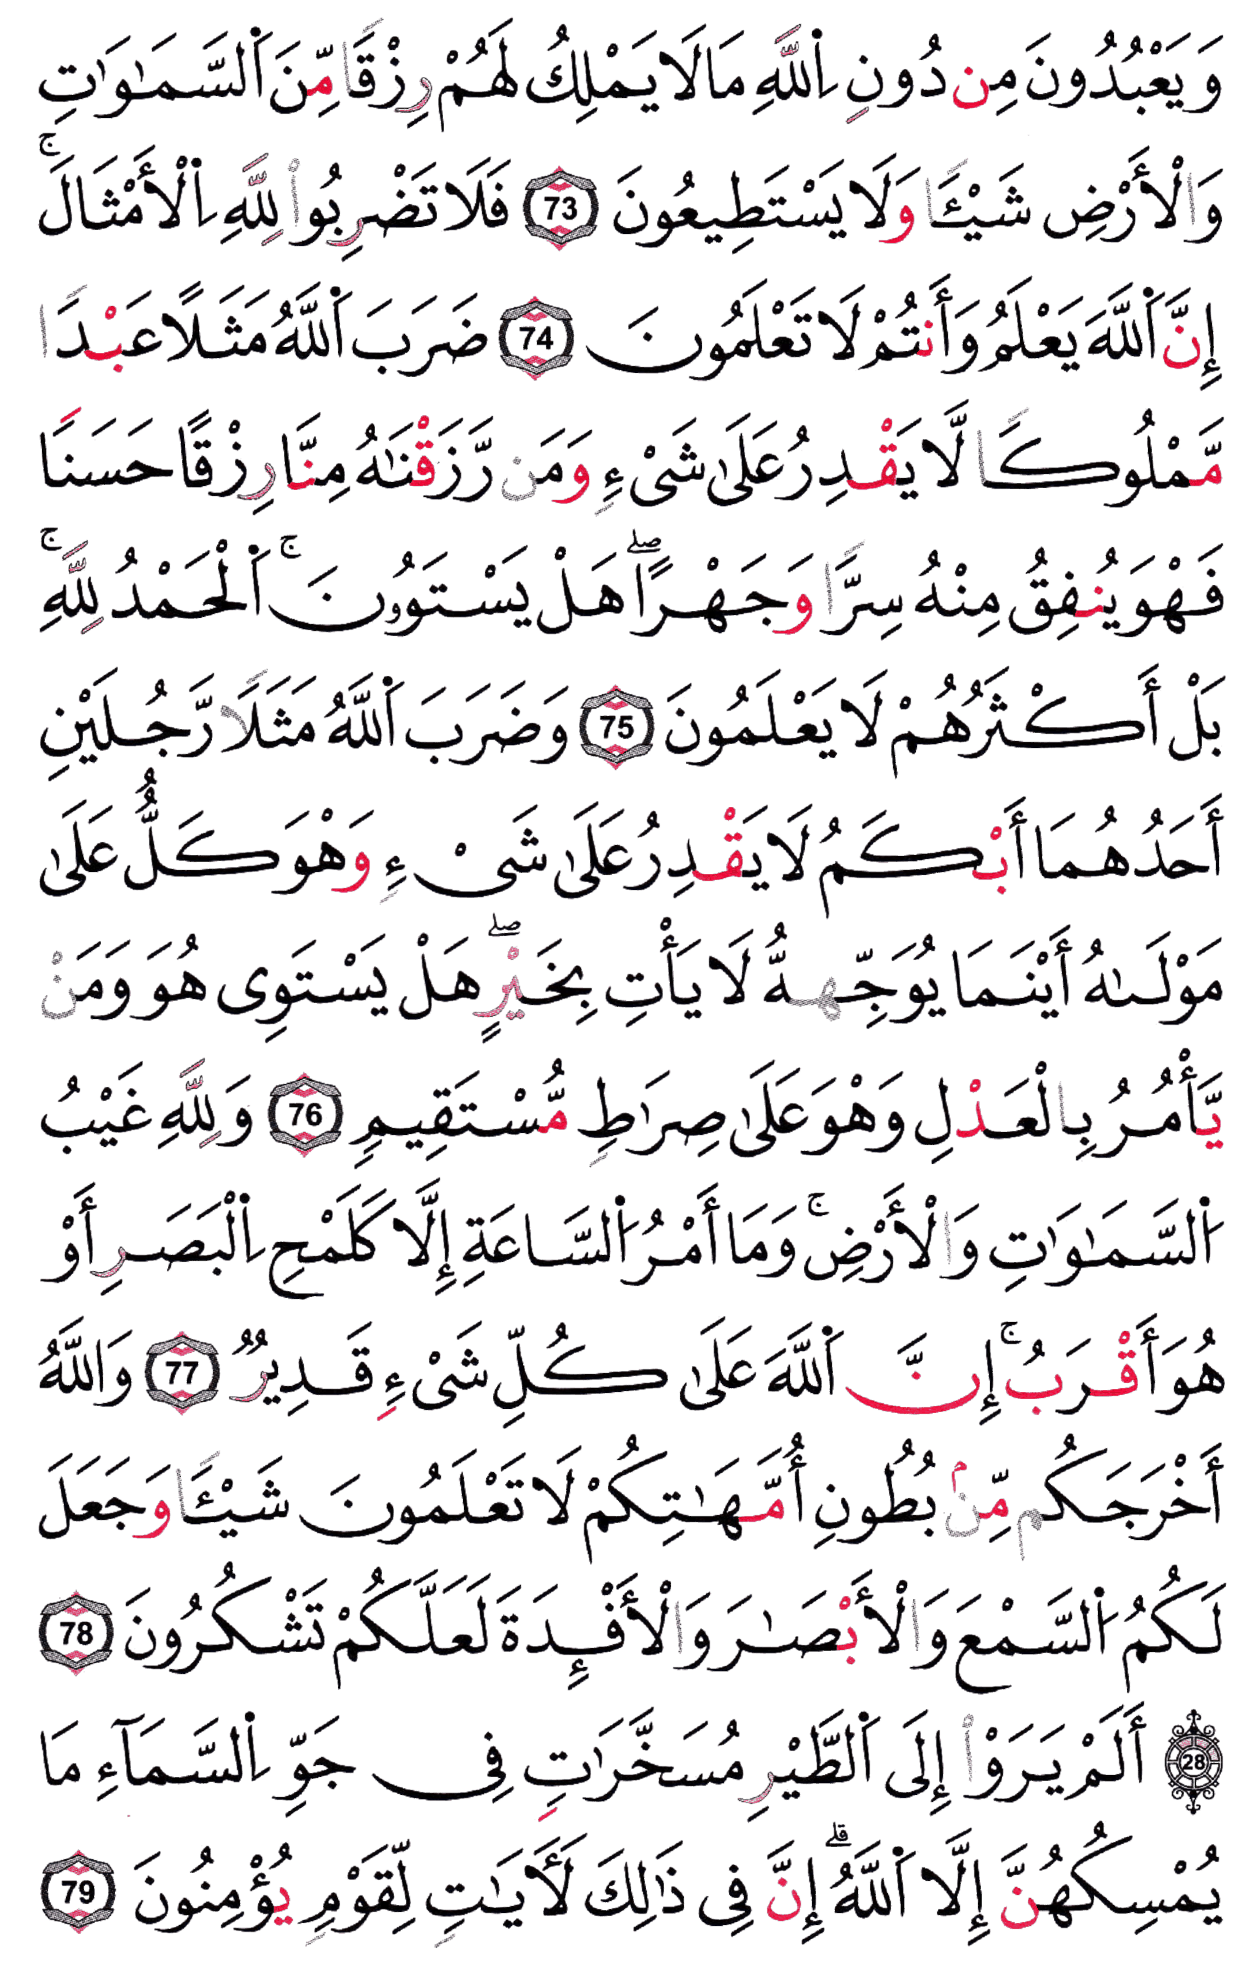 وَيَعْبُدُونَ مِن دُونِ اِ۬للَّهِ مَا لَا يَمْلِكُ لَهُمْ رِزْقًا مِّنَ اَ۬لسَّمَٰوَٰتِ
وَالْأَرْضِ شَيْـًٔا وَلَا يَسْتَطِيعُونَ 73 فَلَا تَضْرِبُوا۟ لِلَّهِ اِ۬لْأَمْثَالَ ۚ
إِنَّ اَ۬للَّهَ يَعْلَمُ وَأَنتُمْ لَا تَعْلَمُونَ 74 ضَرَبَ اَ۬للَّهُ مَثَلًا عَبْدًا
مَّمْلُوكًا لَّا يَقْدِرُ عَلَىٰ شَىْءٍ وَمَن رَّزَقْنَٰهُ مِنَّا رِزْقًا حَسَنًا
فَهْوَ يُنفِقُ مِنْهُ سِرًّا وَجَهْرًا ۖ هَلْ يَسْتَوُۥنَ ۚ اَ۬لْحَمْدُ لِلَّهِ ۚ
بَلْ أَكْثَرُهُمْ لَا يَعْلَمُونَ 75 وَضَرَبَ اَ۬للَّهُ مَثَلًا رَّجُلَيْنِ
أَحَدُهُمَا أَبْكَمُ لَا يَقْدِرُ عَلَىٰ شَىْءٍ وَهْوَ كَلٌّ عَلَىٰ
مَوْلَىٰهُ أَيْنَمَا يُوَجِّههُّ لَا يَأْتِ بِخَيْرٍ ۖ هَلْ يَسْتَوِى هُوَ وَمَنْ
يَّأْمُرُ بِالْعَدْلِ وَهْوَ عَلَىٰ صِرَٰطٍ مُّسْتَقِيمٍ 76 وَلِلَّهِ غَيْبُ
اُ۬لسَّمَٰوَٰتِ وَالْأَرْضِ ۚ وَمَا أَمْرُ اُ۬لسَّاعَةِ إِلَّا كَلَمْحِ اِ۬لْبَصَرِ أَوْ
هُوَ أَقْرَبُ ۚ إِنَّ اَ۬للَّهَ عَلَىٰ كُلِّ شَىْءٍ قَدِيرٌ 77 وَاللَّهُ
أَخْرَجَكُم مِّنۢ بُطُونِ أُمَّهَٰتِكُمْ لَا تَعْلَمُونَ شَيْـًٔا وَجَعَلَ
لَكُمُ اُ۬لسَّمْعَ وَالْأَبْصَٰرَ وَالْأَفْـِٕدَةَ لَعَلَّكُمْ تَشْكُرُونَ 78
28 أَلَمْ يَرَوْا۟ إِلَى اَ۬لطَّيْرِ مُسَخَّرَٰتٍ فِى جَوِّ اِ۬لسَّمَآءِ مَا
يُمْسِكُهُنَّ إِلَّا اَ۬للَّهُ ۗ إِنَّ فِى ذَٰلِكَ لَأٓيَٰتٍ لِّقَوْمٍ يُؤْمِنُونَ 79